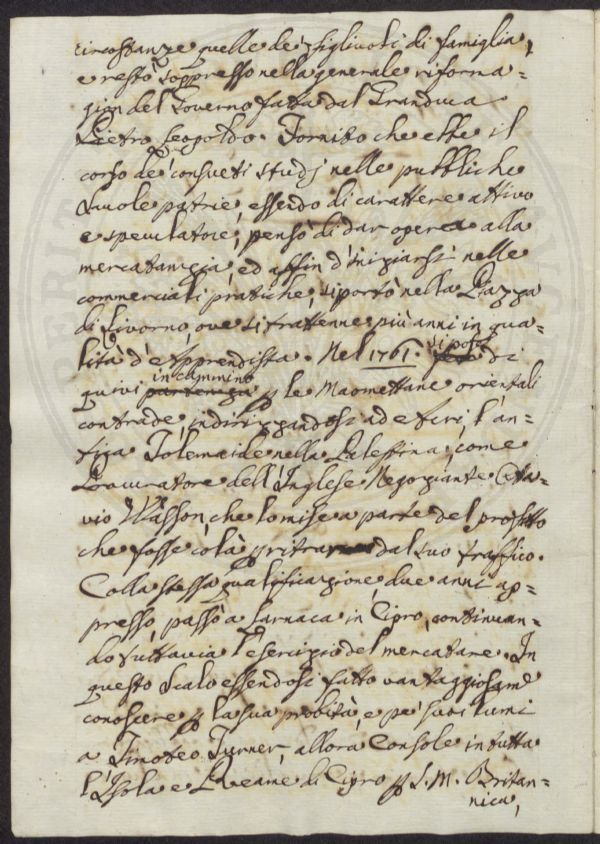 circostanze quelle de' figlivoli di famiglia,
e restò soppresso nella generale riforma=
gion del Governo fatta dal Granduca
Pietro Leopoldo. Fornito che ebbe il
corso de' consueti studj nelle pubbliche
scuole patrie, essendo di carattere attivo
e speculatore, pensò di dar opera alla
mercatanzia, ed affin d'iniziarsi nelle
commerciali pratiche, si portò nella Piazza
di Livorno, ove si trattenne più anni in qua=
lità d'Apprendista. Nel 1761. si pose di
quivi in cammino p le Maomettane orientali
contrade, indirizzandosi ad Acri l'an=
tica Tolemaide nella Palestina, come
Procuratore dell'Inglese Negoziante Otta=
vio Wasson, che lo mise a parte del profitto
che fosse colà p ritrar dal suo traffico.
Colla stessa qualificazione, due anni ap=
presso, passò a Larnaca in Cipro, continuan=
do tuttavia l'esercizio del mercatare. In
questo Scalo essendosi fatto vantaggiosame
conoscere p la sua probità, e pe' suoi lumi
a Timoteo Turner, allora Console in tutta
l'Isola e Reame di Cipro p S. M. Britan=
nica,